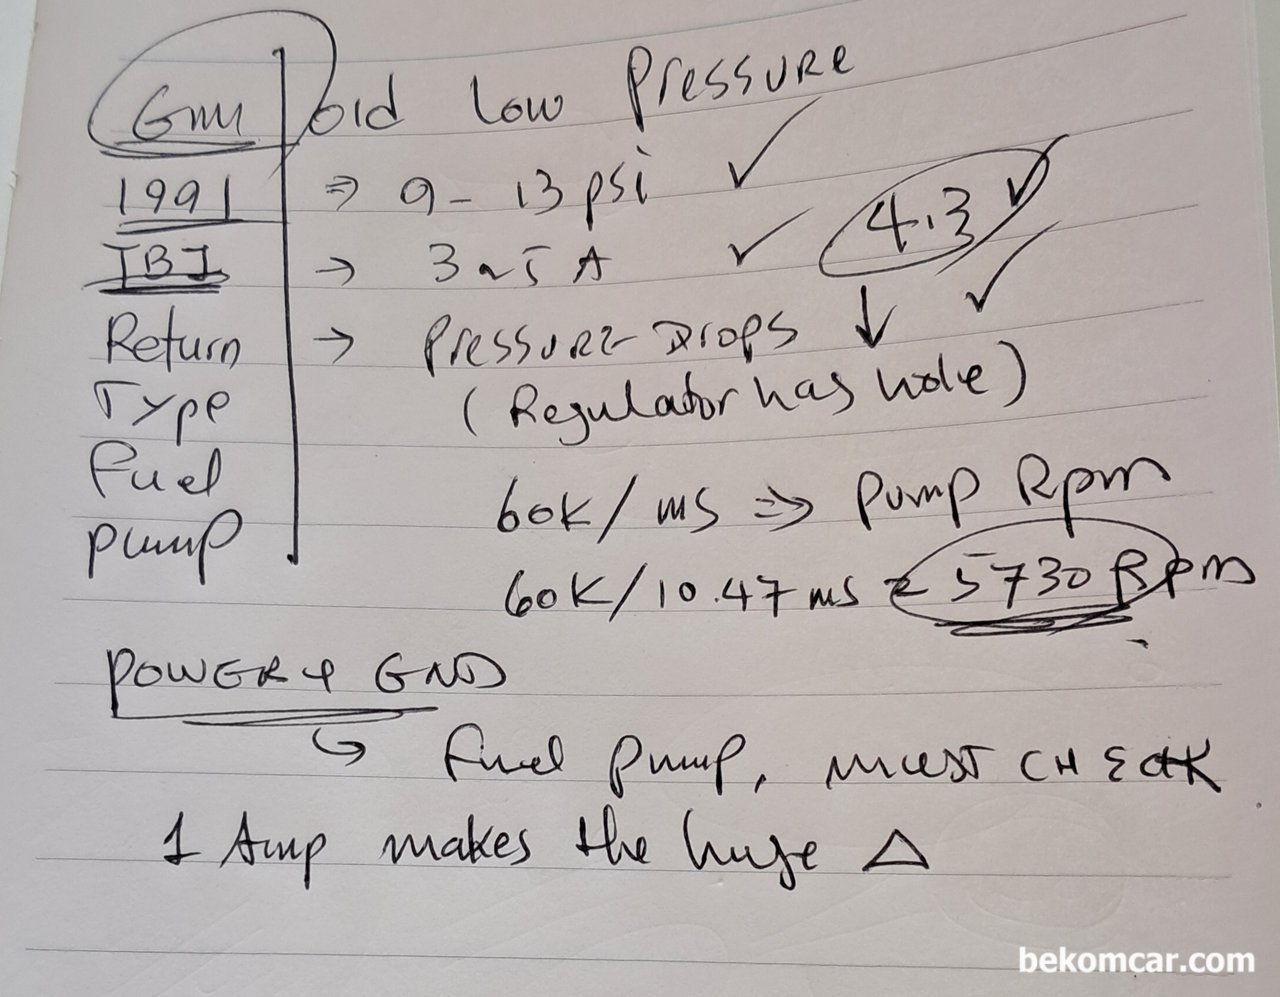 GM old Low PRESSURE
1991 ⇒ 9-13 psi ✓
TBI → 3~5 A ✓ 4.3 ✓
Return → PRESSURE DROPS ↓ ✓
Type (Regulator has hole)
Fuel
pump
60K/ms ⇒ Pump Rpm
60K/10.47ms = 5730 Rpm
POWER + GND
↪ Fuel pump, must CHECK
1 Amp makes the huge Δ
bekomcar.com